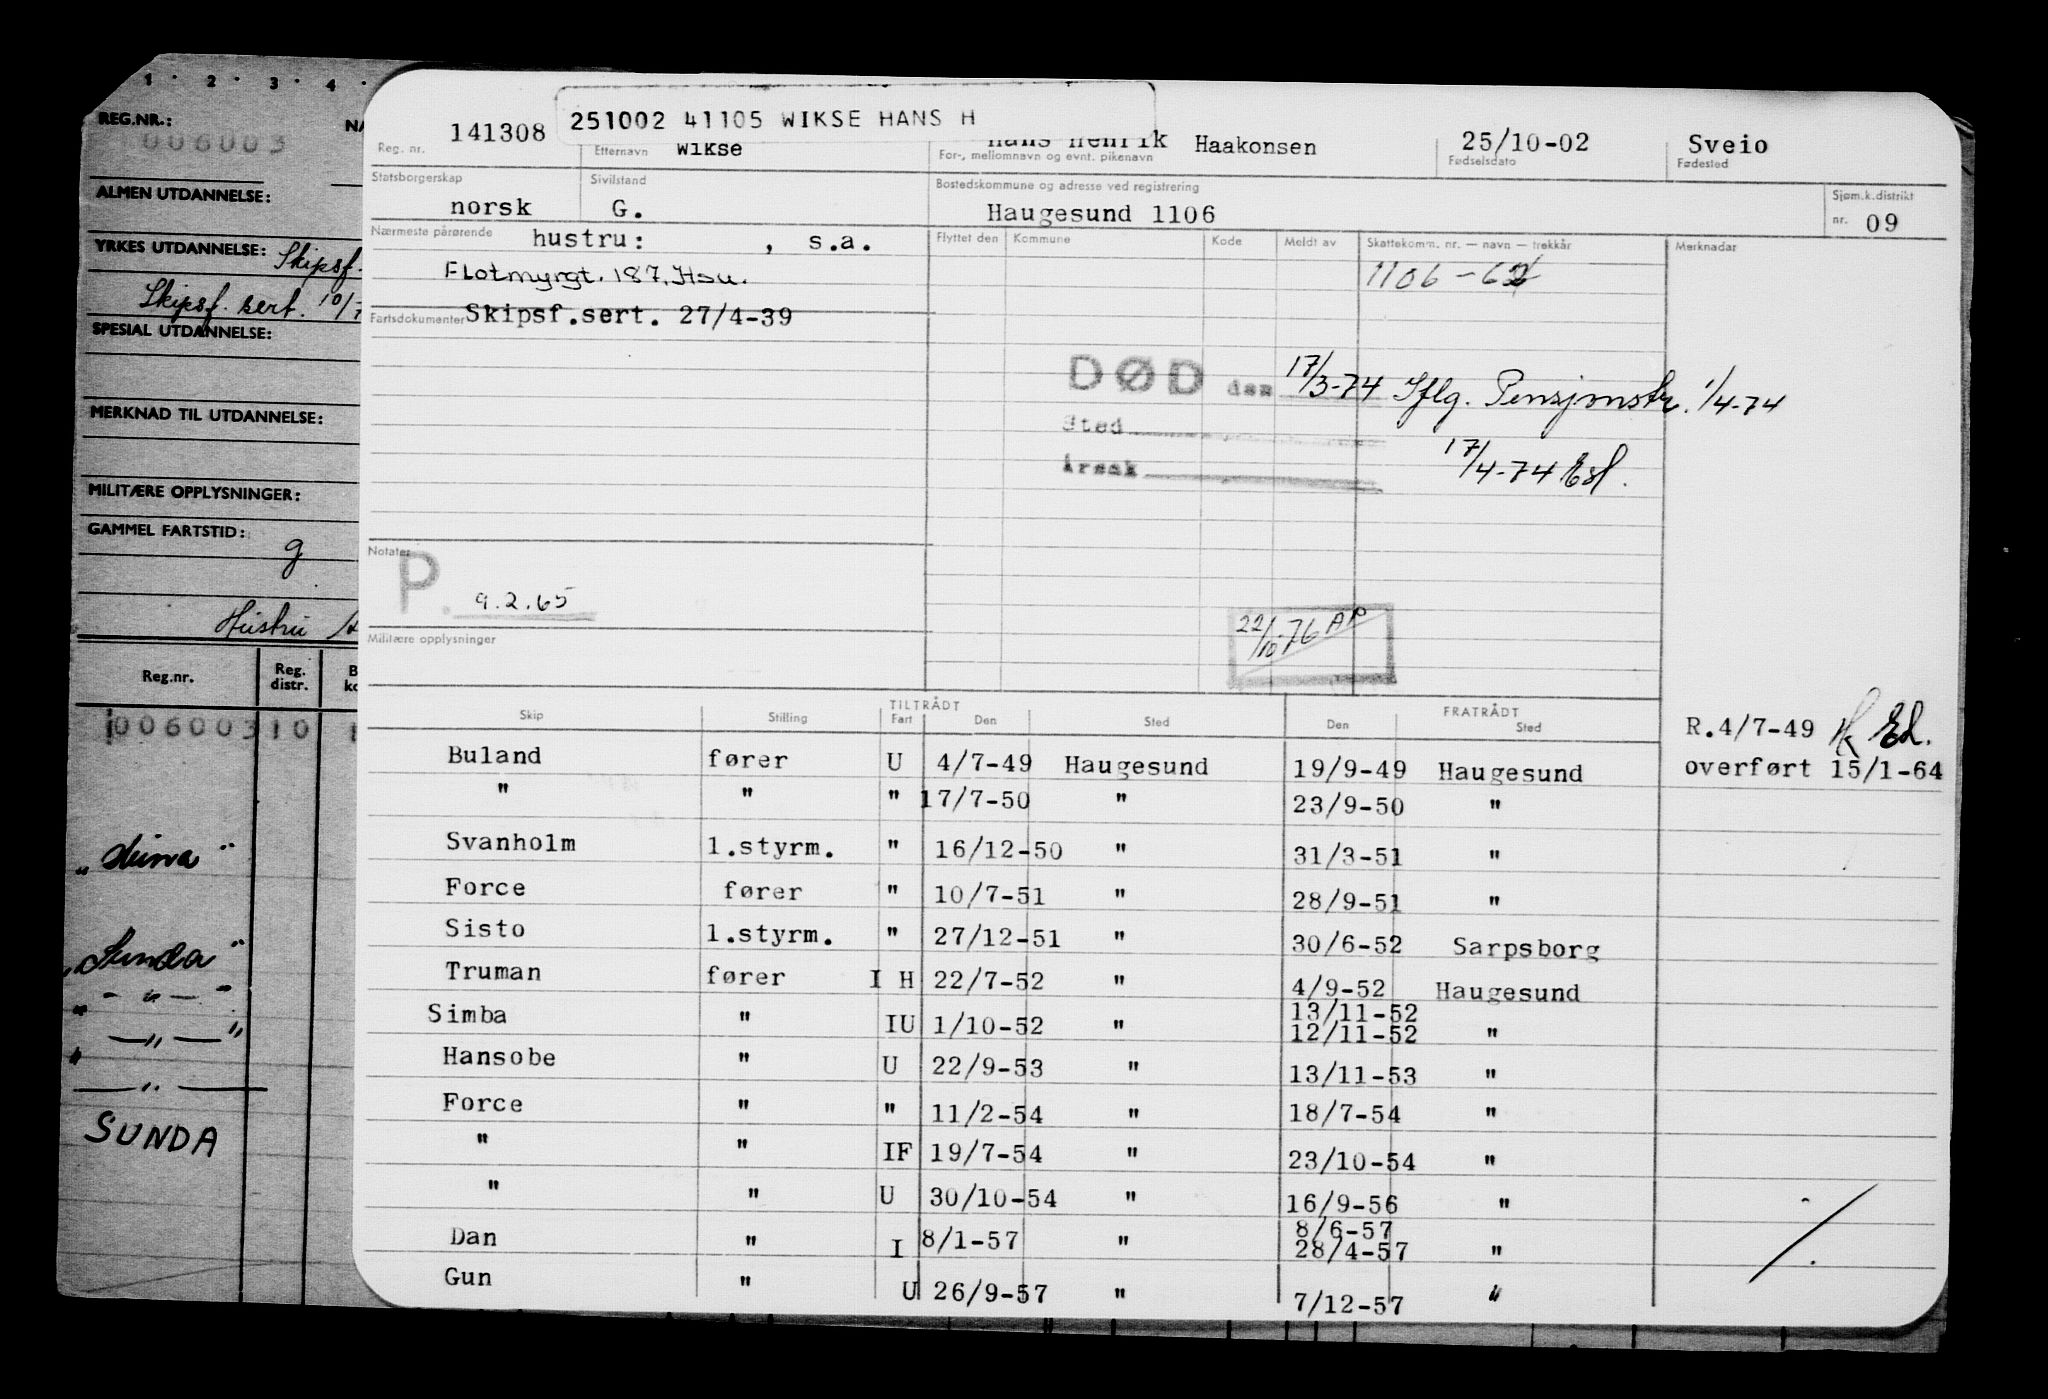 1 · 2 · 3 · 4 ·
REG.NR.:
006003
ALMEN UTDANNELSE:
YRKES UTDANNELSE: Skipsf.
Skipsf. sert. 10/
SPESIAL UTDANNELSE:
MERKNAD TIL UTDANNELSE:
MILITÆRE OPPLYSNINGER:
GAMMEL FARTSTID: g
Hustru
Reg.nr. Reg. distr.
006003 10
"Sunda"
" — " — "
" — " — "
— " —
SUNDA
251002 41105 WIKSE HANS H
Reg. nr. 141308 Etternavn Wikse Hans Henrik Haakonsen For-, mellomnavn og evnt. pikenavn 25/10-02 Fødselsdato Sveio Fødested
Statsborgerskap norsk Sivilstand G. Bostedskommune og adresse ved registrering Haugesund 1106 Sjøm.k.distrikt nr. 09
Nærmeste pårørende hustru: , s.a. Flyttet den Kommune Kode Meldt av Skattekomm. nr. — navn — trekkår Merknader
Flotmyrgt. 187, Hsu. 1106 - 62
Fartsdokumenter Skipsf.sert. 27/4-39
DØD den 17/3-74 Iflg. Pensjonstr. 1/4-74
Sted
Årsak 17/4-74 Esl.
Notater
P. 9.2.65
22/10-76 AP
Militære opplysninger
TILTRÅDT FRATRÅDT
Skip Stilling Fart Den Sted Den Sted
R.4/7-49
overført 15/1-64
Buland fører U 4/7-49 Haugesund 19/9-49 Haugesund
" " " 17/7-50 " 23/9-50 "
Svanholm 1.styrm. " 16/12-50 " 31/3-51 "
Force fører " 10/7-51 " 28/9-51 "
Sisto 1.styrm. " 27/12-51 " 30/6-52 Sarpsborg
Truman fører I H 22/7-52 " 4/9-52 Haugesund
13/11-52
Simba " IU 1/10-52 " 12/11-52 "
Hansobe " U 22/9-53 " 13/11-53 "
Force " " 11/2-54 " 18/7-54 "
" " IF 19/7-54 " 23/10-54 "
" " U 30/10-54 " 16/9-56 "
8/6-57
Dan " I 8/1-57 " 28/4-57 "
Gun " U 26/9-57 " 7/12-57 "